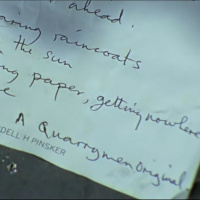 ahead.
raincoats
the sun
paper, getting nowhere
A Quarrymen Original
DELL H PINSKER